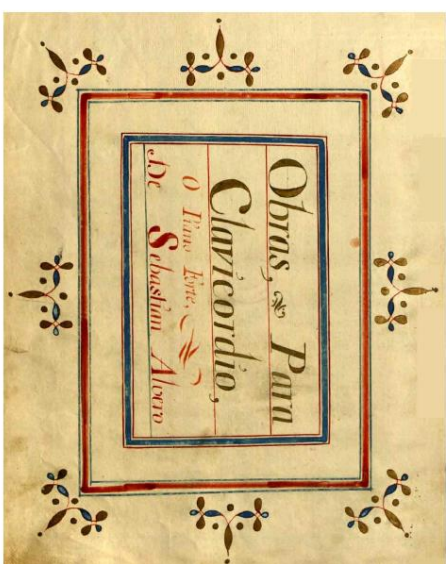 Obras, Para
Clavicordio,
O Piano Forte,
De Sebastian Alvero